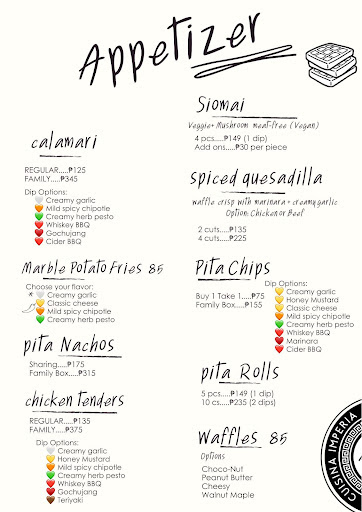 Appetizer
calamari
REGULAR.....₱125
FAMILY.....₱345
Dip Options:
Creamy garlic
Mild spicy chipotle
Creamy herb pesto
Whiskey BBQ
Gochujang
Cider BBQ
Marble Potato Fries 85
Choose your flavor:
Creamy garlic
Classic cheese
Mild spicy chipotle
Creamy herb pesto
pita Nachos
Sharing.....₱175
Family Box.....₱315
chicken tenders
REGULAR.....₱135
FAMILY.....₱375
Dip Options:
Creamy garlic
Honey Mustard
Mild spicy chipotle
Creamy herb pesto
Whiskey BBQ
Gochujang
Teriyaki
Siomai
Veggie+ Mushroom meat-free (Vegan)
4 pcs.....₱149 (1 dip)
Add ons.....₱30 per piece
spiced quesadilla
waffle crisp with marinara + creamy garlic
Option: Chicken or Beef
2 cuts.....₱135
4 cuts.....₱225
Pita Chips
Buy 1 Take 1.....₱75
Family Box.....₱155
Dip Options:
Creamy garlic
Honey Mustard
Classic cheese
Mild spicy chipotle
Creamy herb pesto
Whiskey BBQ
Marinara
Cider BBQ
pita Rolls
5 pcs.....₱149 (1 dip)
10 cs.....₱235 (2 dips)
Waffles 85
Options
Choco-Nut
Peanut Butter
Cheesy
Walnut Maple
CUISINA IMPERIA